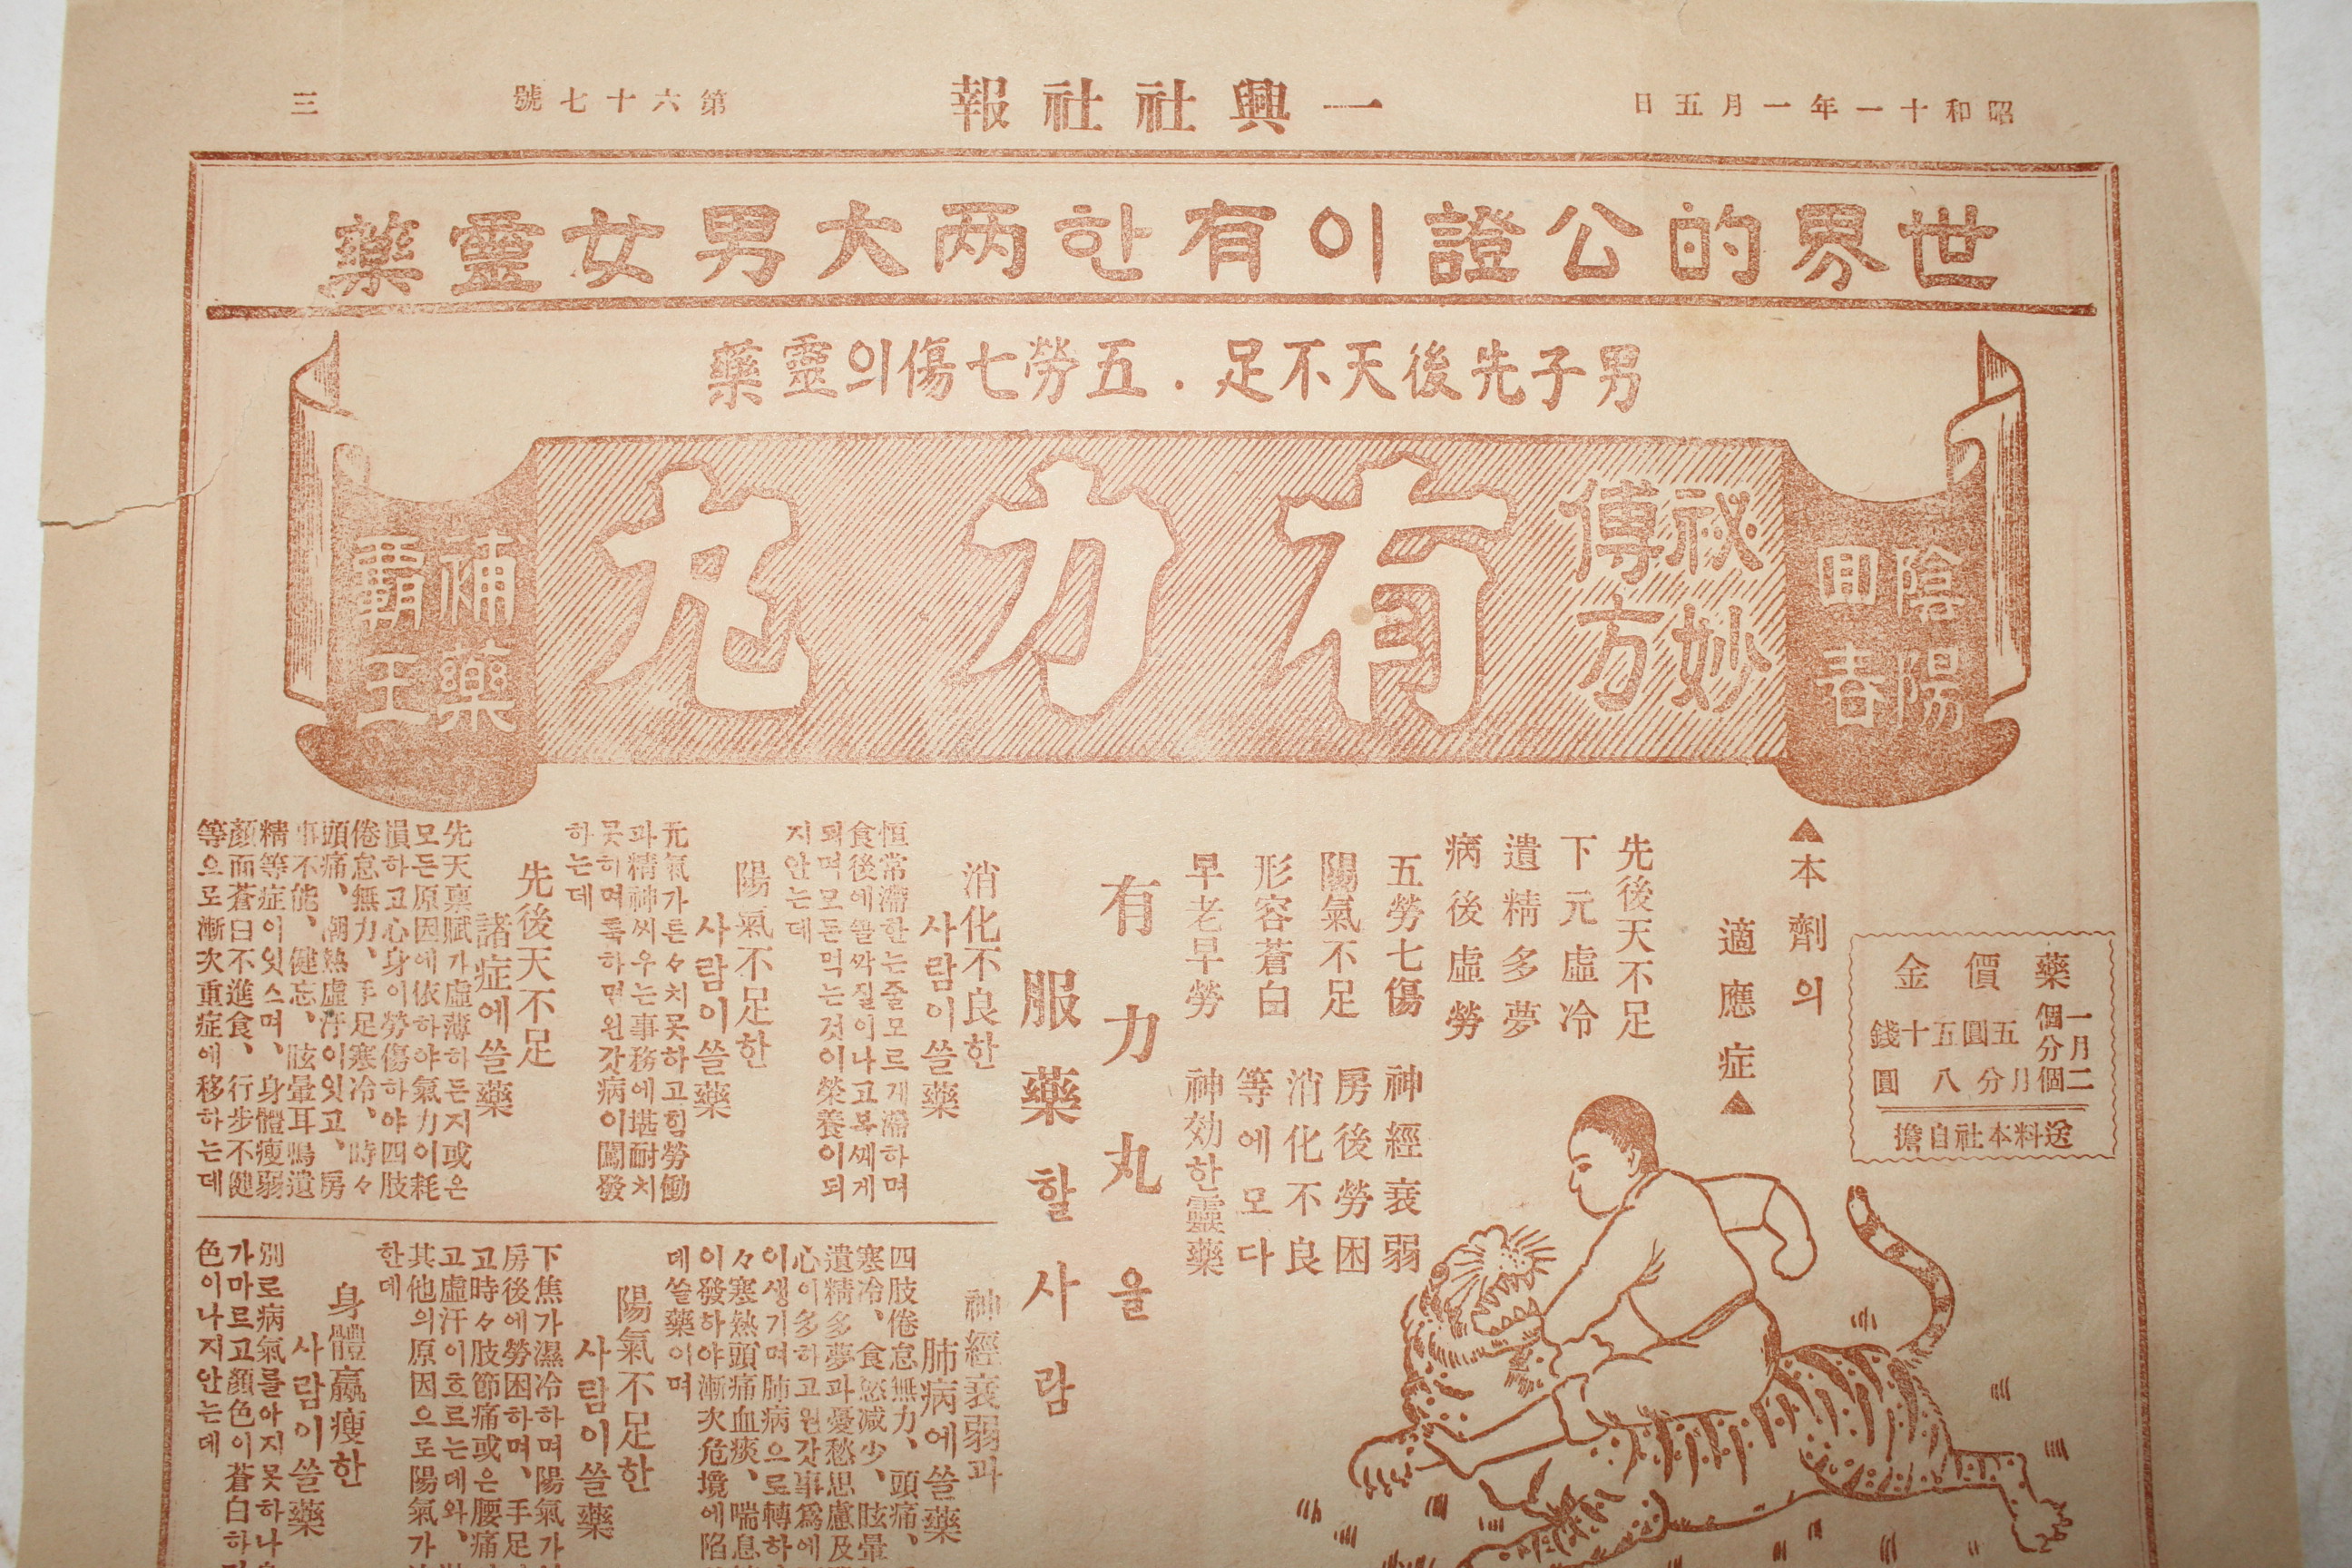 昭和十一年一月五日
一興社社報
第六十七號
三
世界的公證이有한两大男女靈藥
男子先後天不足．五勞七傷의靈藥
陰陽
回春
祕妙
傳方
有力丸
補藥
覇王
藥價金
一個月分 五圓五十錢
二個月分 八圓
送料本社自擔
▲本劑의
適應症▲
先後天不足
下元虛冷
遺精多夢
病後虛勞
五勞七傷
陽氣不足
形容蒼白
早老早勞
神經衰弱
房後勞困
消化不良
等에모다
神効한靈藥
有力丸을
服藥할사람
消化不良한
사람이쓸藥
恒常滯한는줄모르게滯하며
食後에쓸싹질이나고복쎄게
되며모든먹는것이榮養이되
지안는데
陽氣不足한
사람이쓸藥
元氣가든々치못하고힘勞働
과精神씨우는事務에堪耐치
못하며툭하면왼갓病이闖發
하는데
先後天不足
諸症에쓸藥
先天稟賦가虛薄하든지或은
모든原因에依하야氣力이耗
損하고心身이勞傷하야四肢
倦怠無力、手足寒冷、時々
頭痛、潮熱虛汗이잇고、房
事不能、健忘、眩暈耳鳴遺
精等症이잇스며、身體瘦弱
顏面蒼白不進食、行步不健
等으로漸次重症에移하는데
神經衰弱과
肺病에쓸藥
四肢倦怠無力、頭痛、
寒冷、食慾减少、眩暈
遺精多夢과憂愁思慮及
心이多하고왼갓事爲에
이생기며肺病으로轉하
々寒熱頭痛血痰、喘息
이發하야漸次危境에陷
데쓸藥이며
陽氣不足한
사람이쓸藥
下焦가濕冷하며陽氣가
房後에勞困하며、手足
고時々肢節痛或은腰痛
고虛汗이흐르는데와、
其他의原因으로陽氣가
한데
身體羸瘦한
사람이쓸藥
別로病氣를아지못하나
가마르고顏色이蒼白하
色이나지안는데